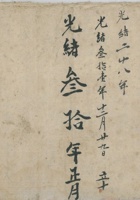 光緒二十八年
光緒叁拾壹年十二月廿九日 立
光緒叁拾年正月